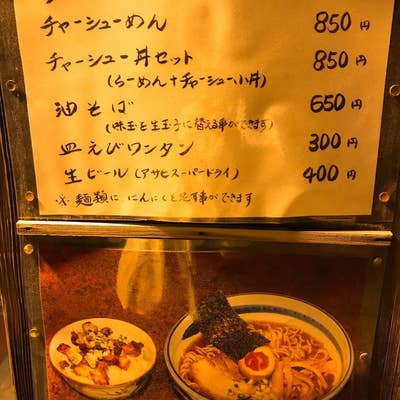 チャーシューめん 850円
チャーシュー丼セット 850円
(らーめん+チャーシュー小丼)
油そば 650円
(味玉を生玉子に替える事ができます)
皿えびワンタン 300円
生ビール(アサヒスーパードライ) 400円
※麺類ににんにくを足す事ができます